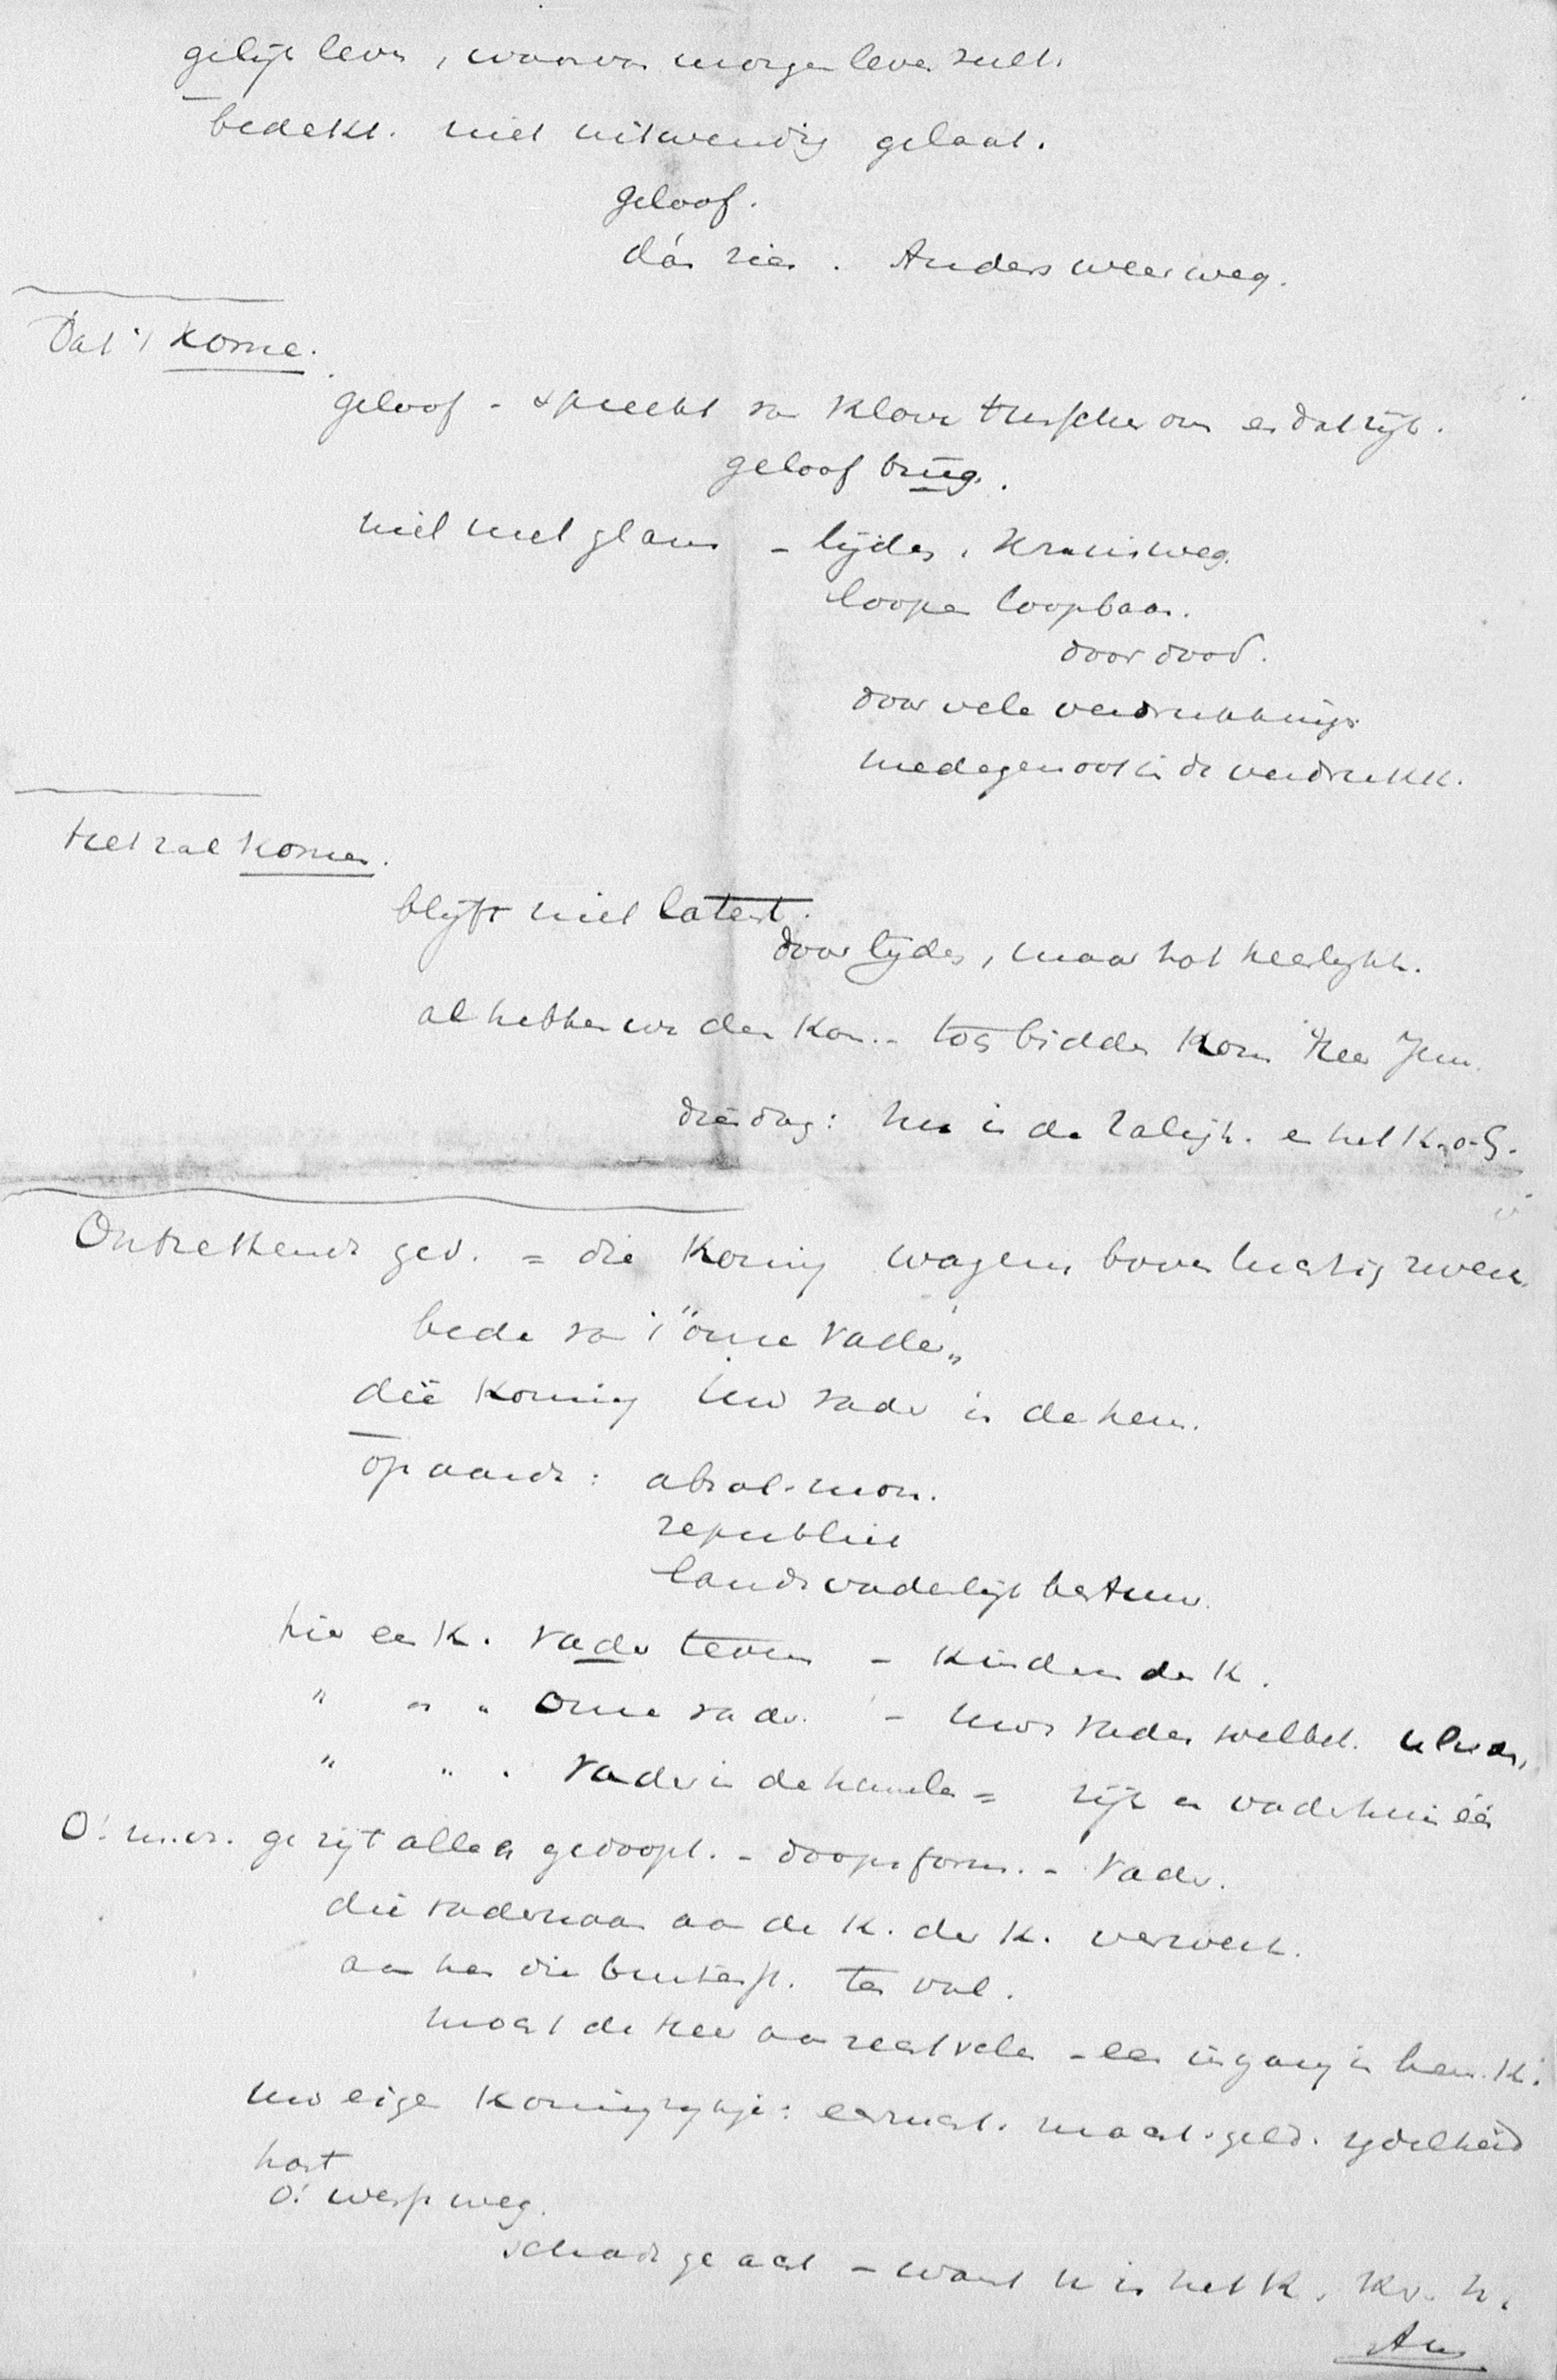 gelijk leven, waarvan morgen leven zult.
bedekt. niet uitwendig gelaat.
geloof.
dán zien. Anders weer weg.
Dat 't kome.
geloof - spreekt van klove tusschen ons en dat rijk.
geloof brug.
niet met glans - lijden, kruisweg.
loopen loopbaan.
door dood.
door vele verdrukkings
medegenoot in de verdrukk.
Het zal komen.
blijft niet latent.
door lijden, maar tot heerlijkh.
al hebben we den Kon.. toch bidden Kom Heer Jezu.
dien dag: nu is de zaligh. en het K. o. G.
Ontzettende ged. = die Koning wagens boven
bede van 't "onze Vader"
die Koning uw Vader in de hem.
op aarde: absol. mon.
republiek
landsvaderlijk bestuur.
hier een K. Vader tevens - kinderen der K.
" " " onze Vader. - uws Vaders welbeh.
" " " Vader in de hemelen = rijk en vaderhuis één
O! m. vr. ge zijt allen gedoopt. - doopsform. - Vader.
die vadernaam aan de K. der K. verwek.
aan hen die ten val.
moest de Heer aan zeer velen - een ingang in hem. K.
uw eigen koninkrijkje: eerzucht. macht. geld. ijdelheid
hart
O! werp weg.
schade geacht - want U is het K. Kr. H.
Am